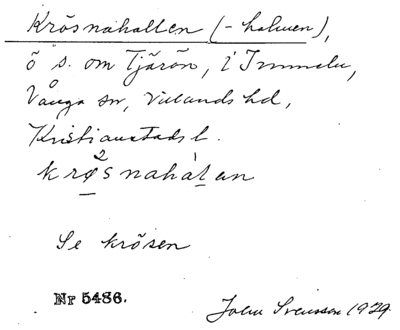 Krösnahallen (-halmen),
ö s. om Tjärön, i Immeln,
Vånga sn, Villands hd,
Kristianstads l.
krø²snahàlan
Se krösen
Nr 5486.
John Svensson 1929.